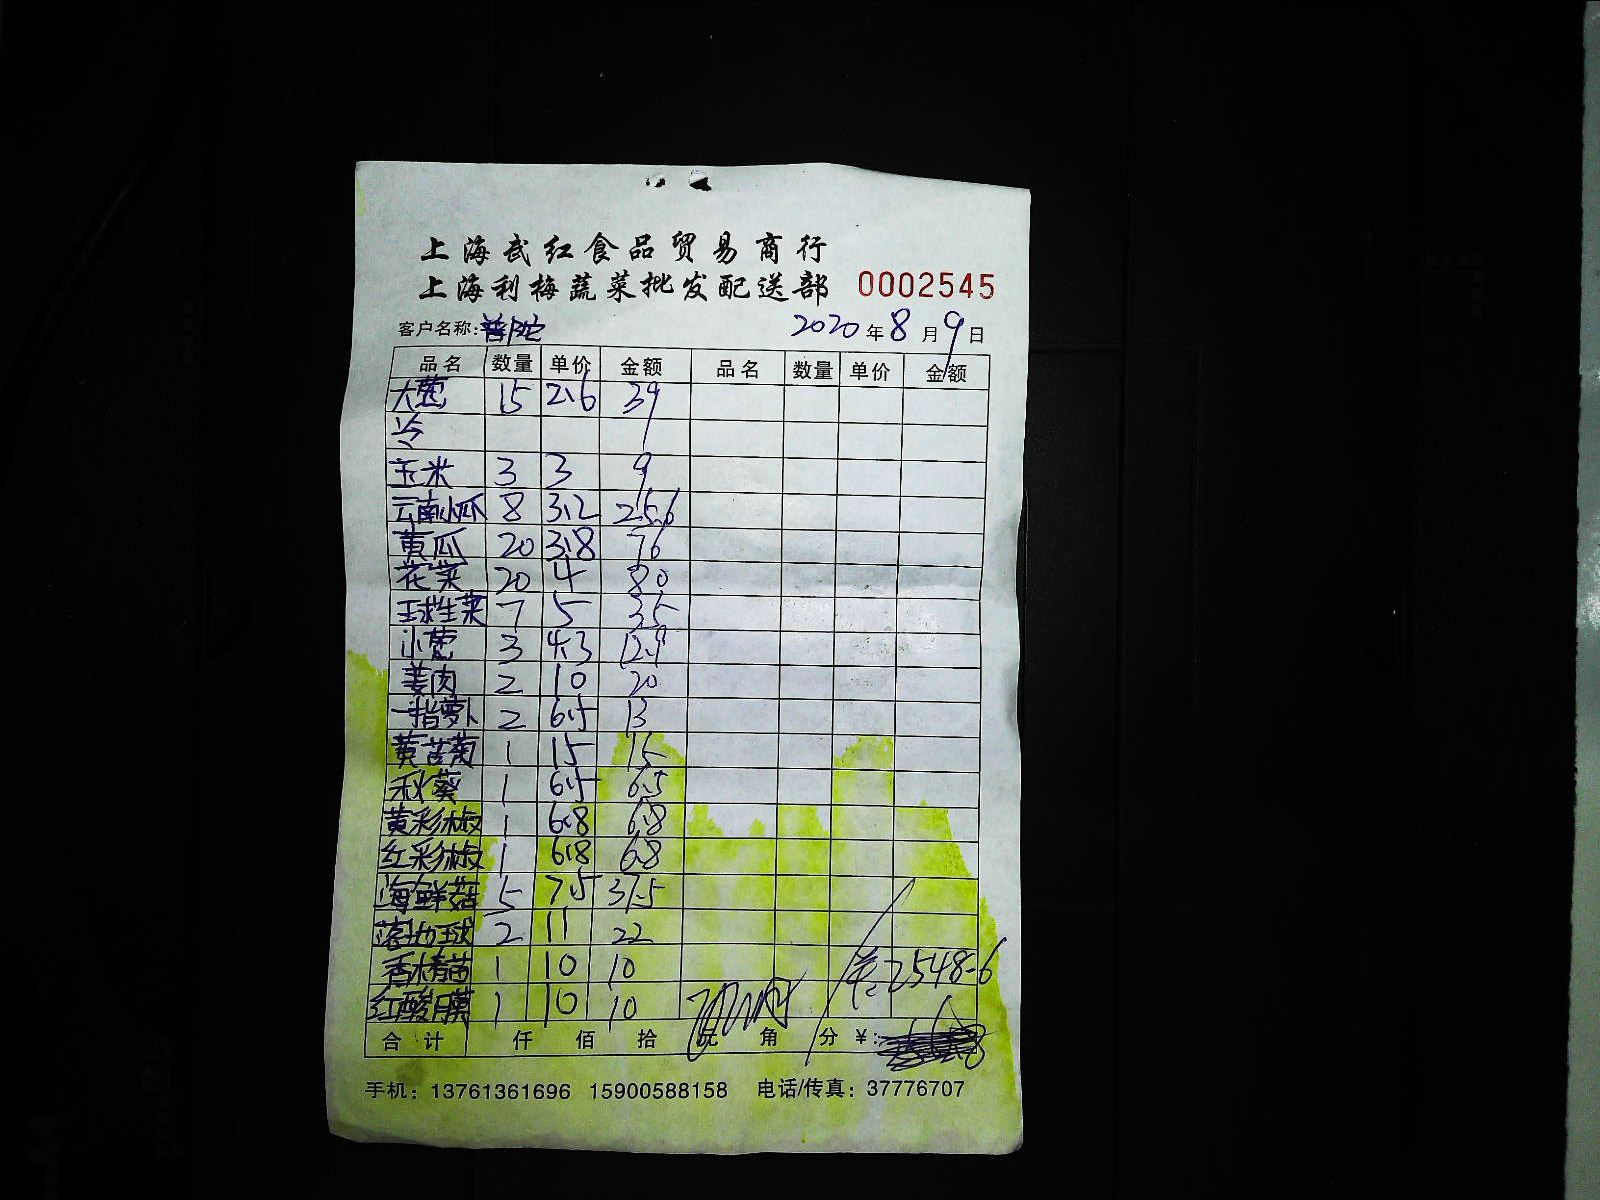 上海武红食品贸易商行
上海利梅蔬菜批发配送部 0002545
客户名称:普陀 2020年8月9日
品名 数量 单价 金额 品名 数量 单价 金额
大葱 15 2.6 39
冷
玉米 3 3 9
云南小瓜 8 3.2 25.6
黄瓜 20 3.8 76
花菜 20 4 80
球生菜 7 5 35
小葱 3 4.3 12.9
姜肉 2 10 20
一指萝卜 2 6.5 13
黄苦菊 1 15 15
秋葵 1 6.5 6.5
黄彩椒 1 6.8 6.8
红彩椒 1 6.8 6.8
海鲜菇 5 7.5 37.5
落地球 2 11 22
香椿苗 1 10 10 2548.6
红酸膜 1 10 10
合计 仟 佰 拾 元 角 分 ¥:
手机：13761361696 15900588158 电话/传真：37776707